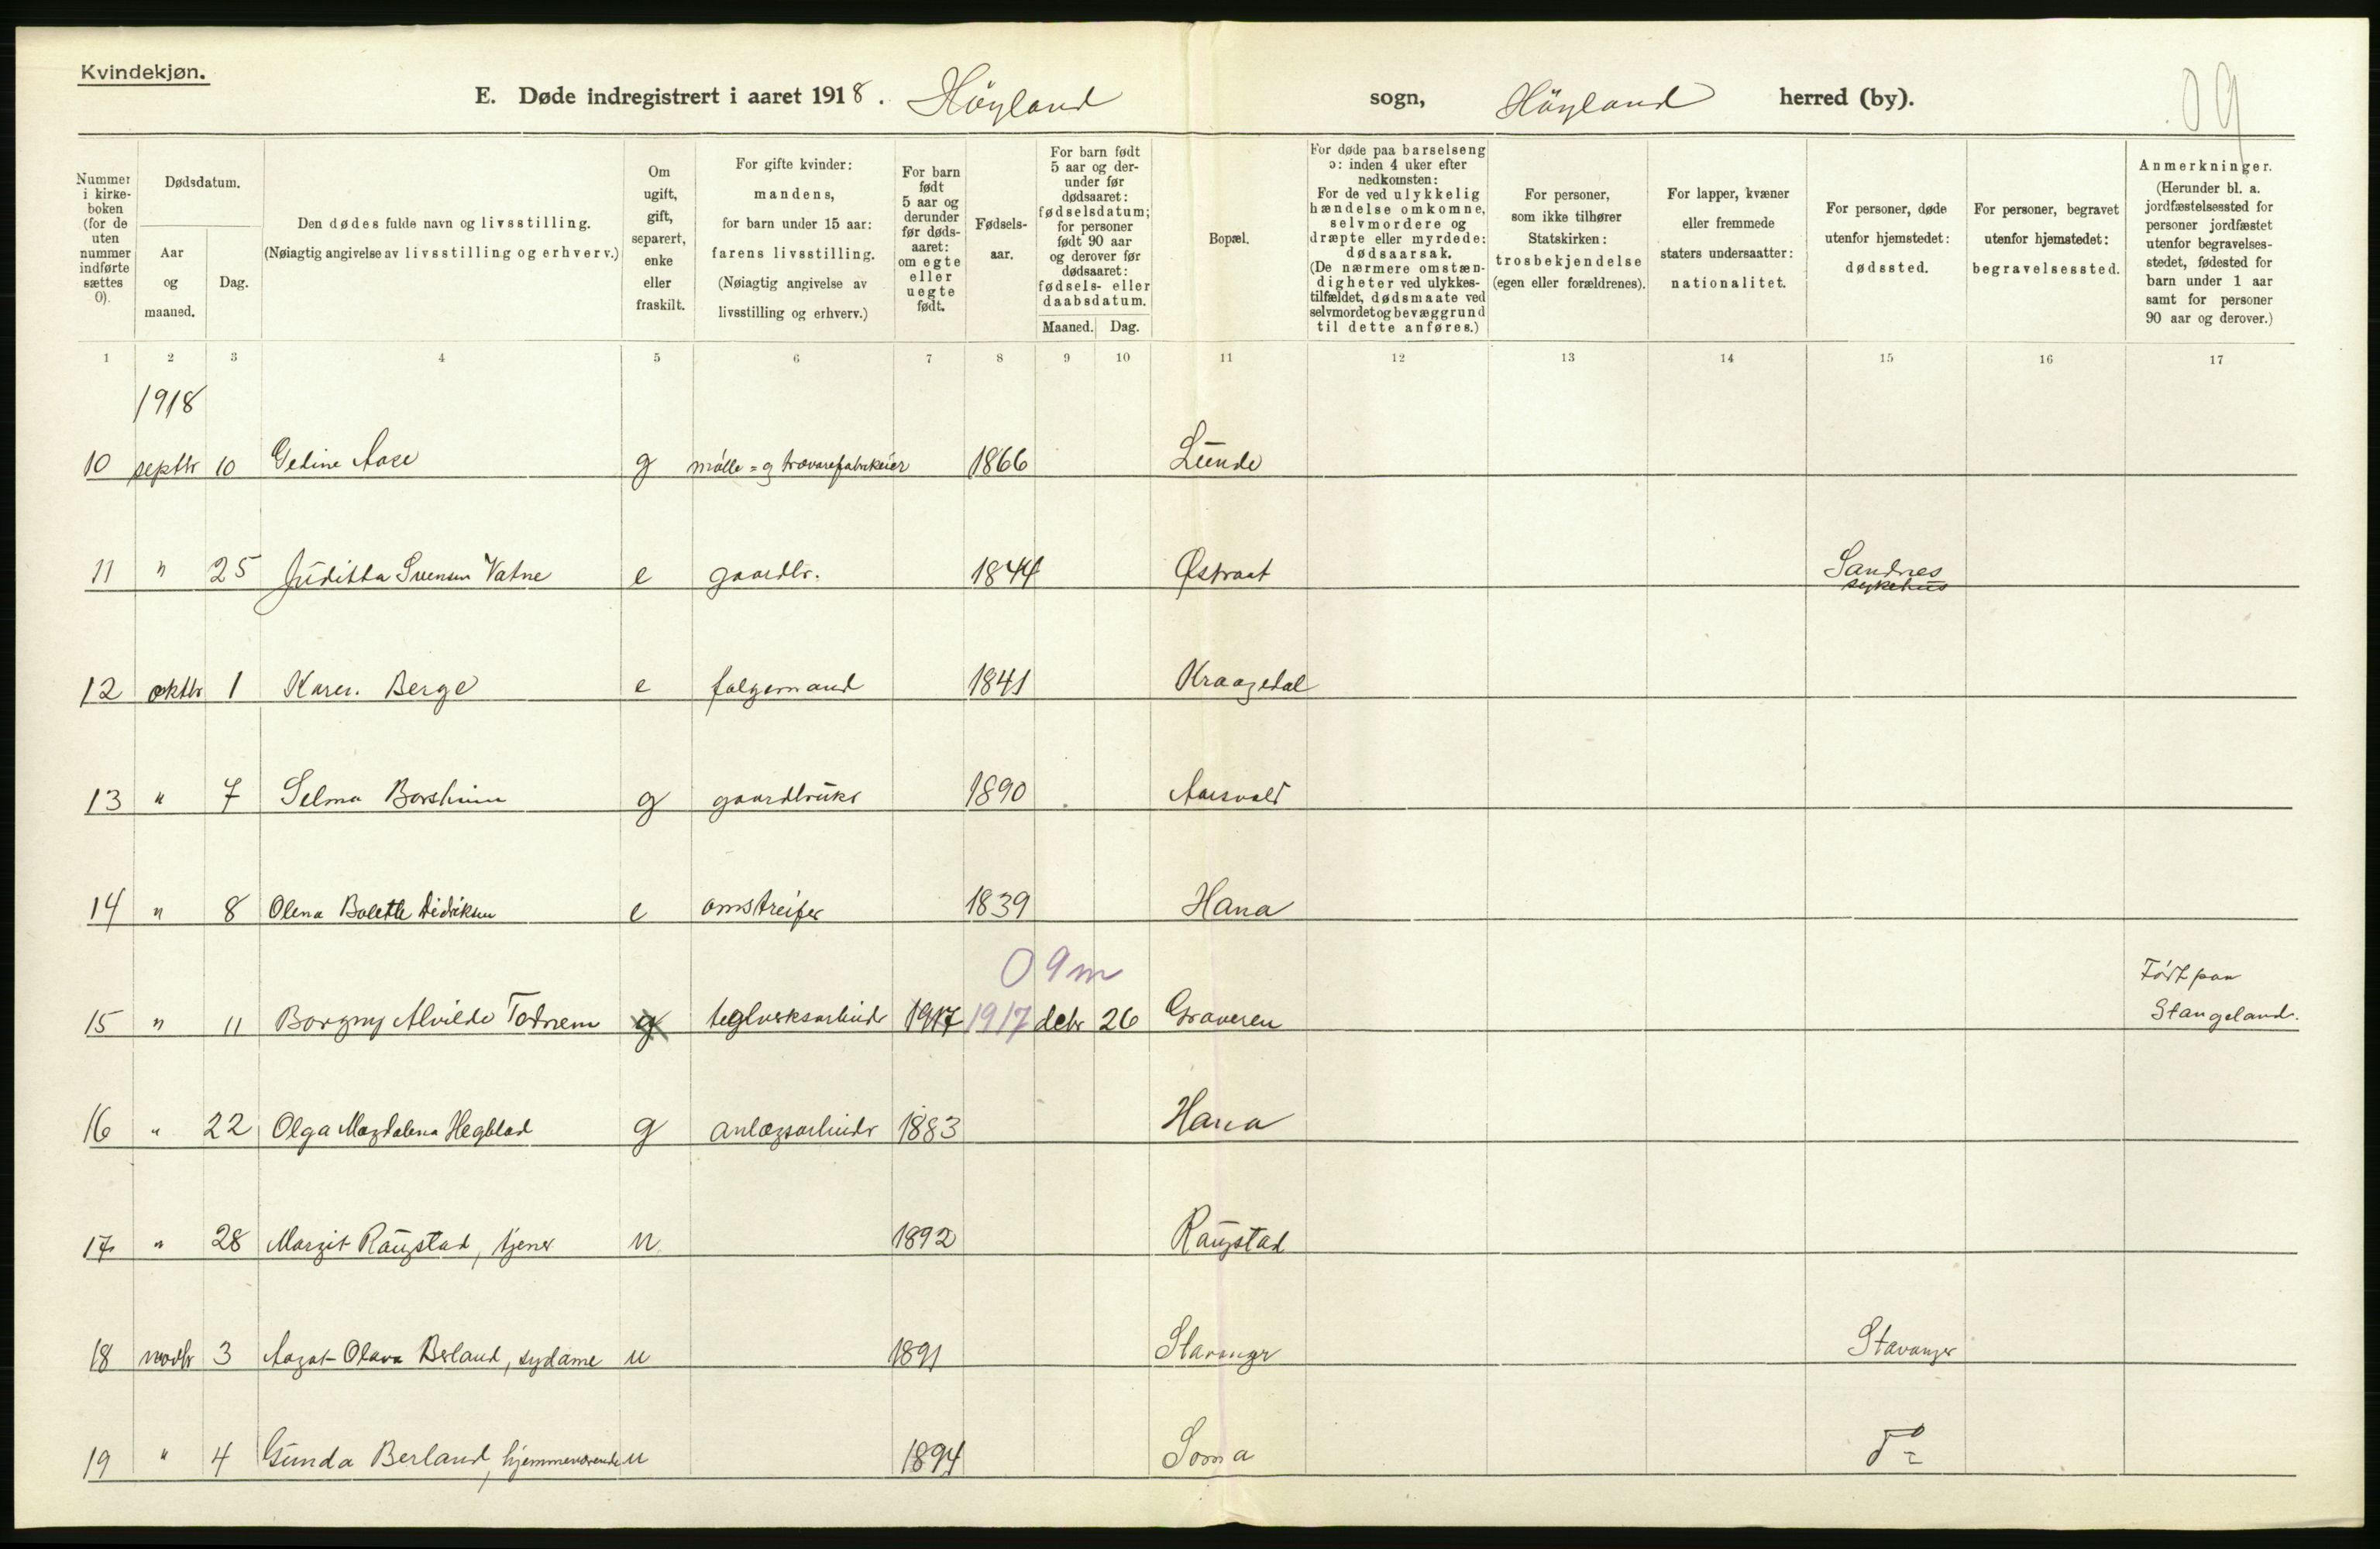 Kvindekjøn.
E. Døde indregistrert i aaret 1918. Höyland sogn, Höyland herred (by).
09
Nummer i kirkeboken (for de uten nummer indførte sættes 0).
Dødsdatum.
Aar og maaned.
Dag.
Den dødes fulde navn og livsstilling.
(Nøiagtig angivelse av livsstilling og erhverv.)
Om ugift, gift, separert, enke eller fraskilt.
For gifte kvinder: mandens, for barn under 15 aar: farens livsstilling.
(Nøiagtig angivelse av livsstilling og erhverv.)
For barn født 5 aar og derunder før dødsaaret: om egte eller uegte født.
Fødselsaar.
For barn født 5 aar og derunder før dødsaaret: fødselsdatum; for personer født 90 aar og derover før dødsaaret: fødsels- eller daabsdatum.
Maaned. Dag.
Bopæl.
For døde paa barselseng ɔ: inden 4 uker efter nedkomsten:
For de ved ulykkelig hændelse omkomne, selvmordere og dræpte eller myrdede: dødsaarsak.
(De nærmere omstændigheter ved ulykkestilfældet, dødsmaate ved selvmordet og bevæggrund til dette anføres.)
For personer, som ikke tilhører Statskirken: trosbekjendelse (egen eller forældrenes).
For lapper, kvæner eller fremmede staters undersaatter: nationalitet.
For personer, døde utenfor hjemstedet: dødssted.
For personer, begravet utenfor hjemstedet: begravelsessted.
Anmerkninger.
(Herunder bl. a. jordfæstelsessted for personer jordfæstet utenfor begravelsesstedet, fødested for barn under 1 aar samt for personer 90 aar og derover.)
1 2 3 4 5 6 7 8 9 10 11 12 13 14 15 16 17
1918
10 septbr 10 Getine Aase g mölle = g trævarefabrikeier 1866 Lunde
11 " 25 Juditta Svensen Vatne e gaardbr. 1844 Østraat Sandnes sykehus
12 oktbr 1 Karen Berge e følgemand 1841 Kraagedal
13 " 7 Selma Borsheim g gaardbruker 1890 Aarsvold
14 " 8 Olena Bolette Didriksen e omstreifer 1839 Hana
09m
15 " 11 Borgny Alvilde Todnem g teglverksarbeider 1917 1917 debr 26 Graveren Født paa Stangeland.
16 " 22 Olga Magdalena Hegblad g anlægsarbeider 1883 Hana
17 " 28 Margit Raugstad, tjener u 1892 Raugstad
18 novbr 3 Aagot Olava Berland, sydame u 1891 Stavanger Stavanger
19 " 4 Gunda Berland, hjemmeværende u 1894 Soma do